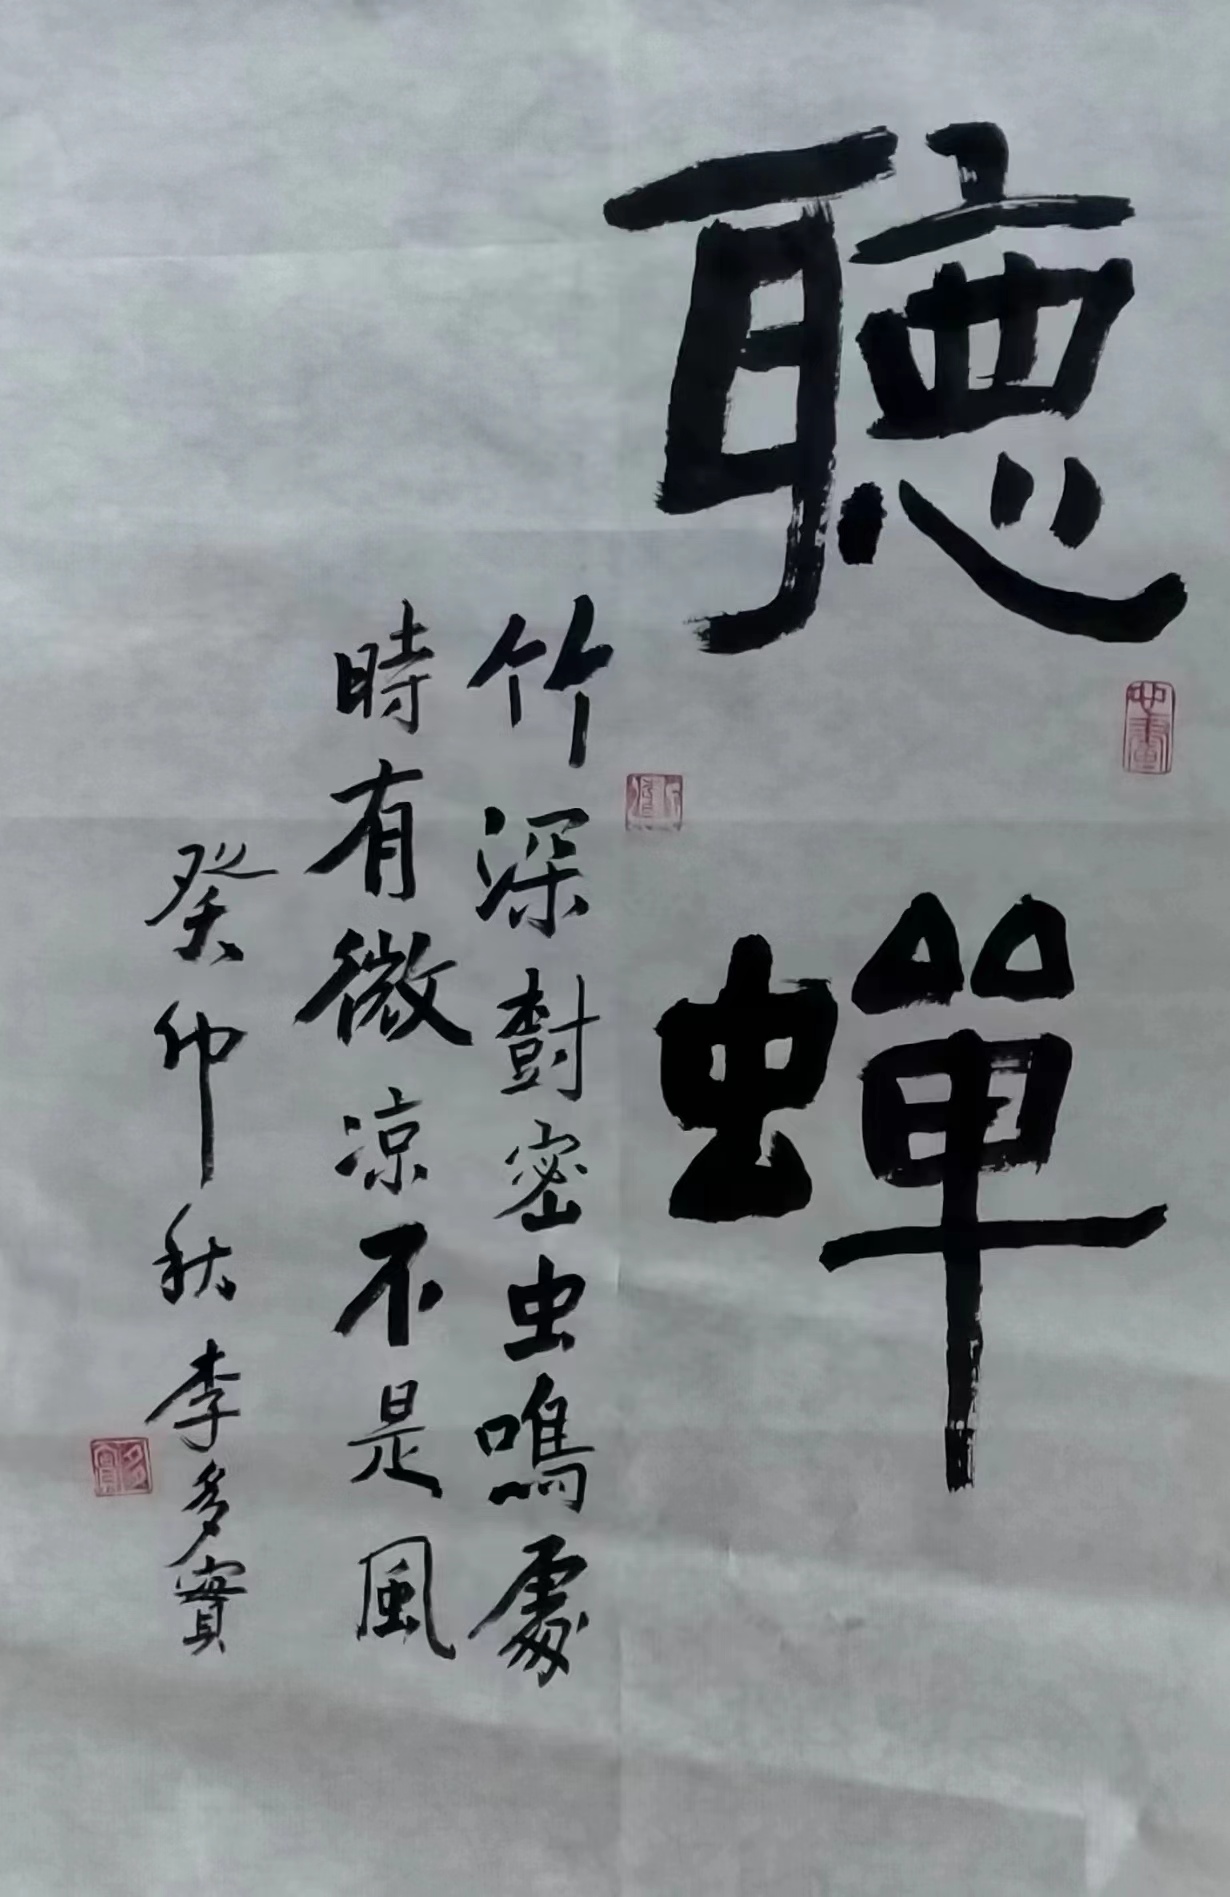 聽蟬
竹深樹密虫鳴處
時有微涼不是風
癸卯秋李多寶